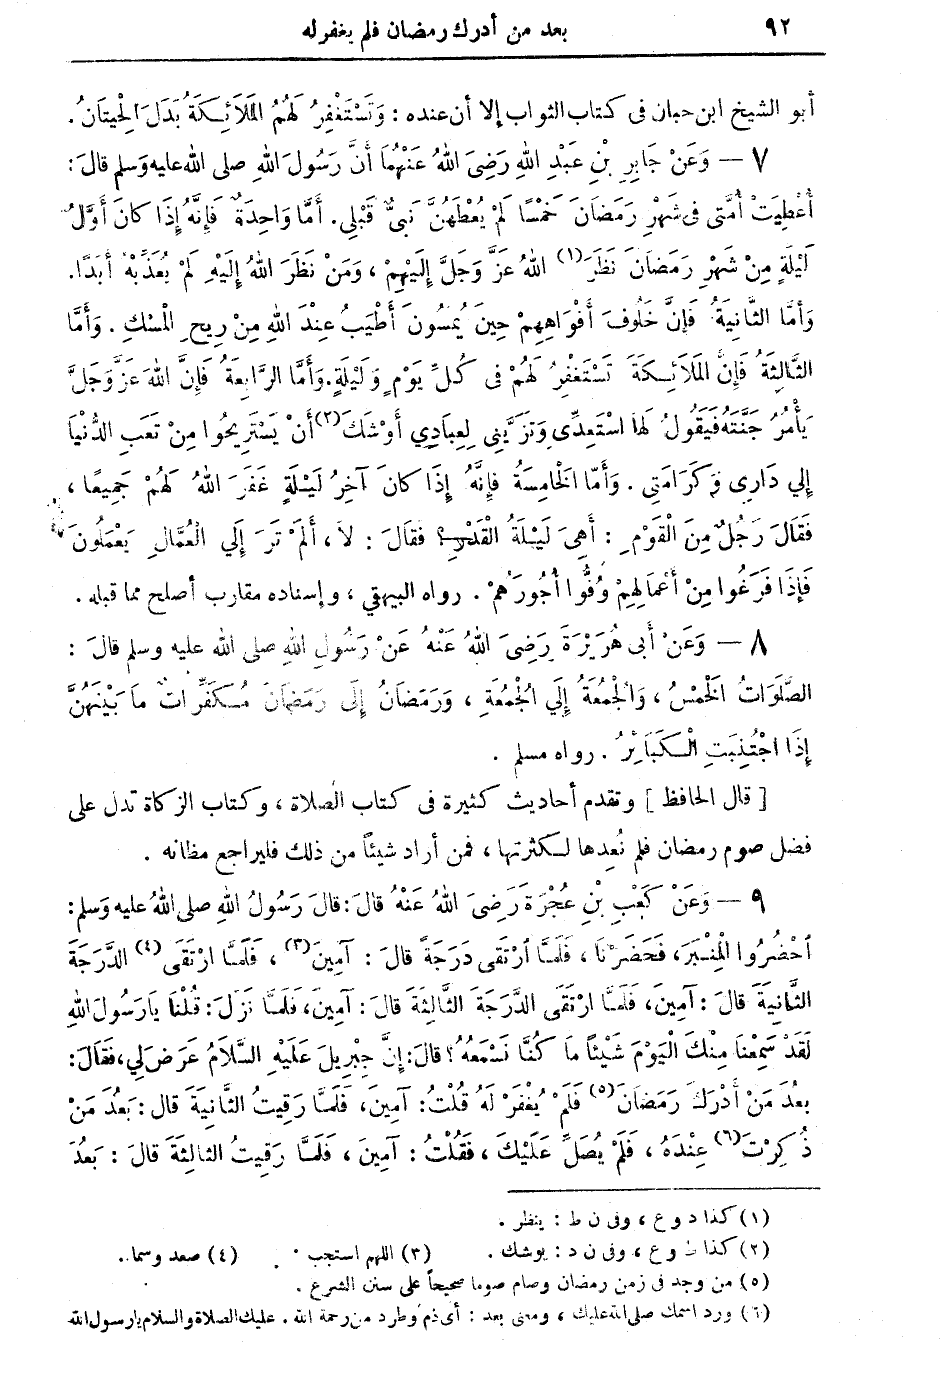 ٩٢ بعد من أدرك رمضان فلم يغفر له
أبو الشيخ ابن حبان فى كتاب الثواب إلا أن عنده : وَتَسْتَغْفِرُ لَهُمُ الْمَلَائِكَةُ بَدَلَ الْحِيتَانُ .
٧ — وَعَنْ جَابِرِ بْنِ عَبْدِ اللهِ رَضِىَ اللهُ عَنْهُمَا أَنَّ رَسُولَ اللهِ صلى الله عليه وسلم قالَ :
أُعْطِيَتْ أُمَّتِى فِى شَهْرِ رَمَضَانَ خَمْسًا لَمْ يُعْطَهُنَّ نَبِىٌّ قَبْلِى . أَمَّا وَاحِدَةٌ فَإِنَّهُ إِذَا كانَ أَوَّلُ
لَيْلَةٍ مِنْ شَهْرِ رَمَضَانَ نَظَرَ (١) اللهُ عَزَّ وَجَلَّ إِلَيْهِمْ ، وَمَنْ نَظَرَ اللهُ إِلَيْهِ لَمْ يُعَذِّبْهُ أَبَدًا .
وَأَمَّا الثَّانِيَةُ فَإِنَّ خَلُوفَ أَفْوَاهِهِمْ حِينَ يُمْسُونَ أَطْيَبُ عِنْدَ اللهِ مِنْ رِيحِ الْمِسْكِ . وَأَمَّا
الثَّالِثَةُ فَإِنَّ الْمَلَائِكَةَ تَسْتَغْفِرُ لَهُمْ فِى كُلِّ يَوْمٍ وَلَيْلَةٍ . وَأَمَّا الرَّابِعَةُ فَإِنَّ اللهَ عَزَّ وَجَلَّ
يَأْمُرُ جَنَّتَهُ فَيَقُولُ لَهَا اسْتَعِدِّى وَتَزَيَّنِى لِعِبَادِي أَوْشَكَ (٢) أَنْ يَسْتَرِيحُوا مِنْ تَعَبِ الدُّنْيَا
إِلي دَارِى وَكَرَامَتِى . وَأَمَّا الْخَامِسَةُ فَإِنَّهُ إِذَا كانَ آخِرُ لَيْلَةٍ غَفَرَ اللهُ لَهُمْ جَمِيعًا ،
فَقَالَ رَجُلٌ مِنَ الْقَوْمِ : أَهِىَ لَيْلَةُ الْقَدْرِ ؟ فَقَالَ : لاَ ، أَلَمْ تَرَ إِلَي الْعُمَّالِ يَعْمَلُونَ
فَإِذَا فَرَغُوا مِنْ أَعْمَالِهِمْ وُفُّوا أُجُورَهُمْ . رواه البيهقي ، وإسناده مقارب أصلح مما قبله .
٨ — وَعَنْ أَبِى هُرَيْرَةَ رَضِىَ اللهُ عَنْهُ عَنْ رَسُولِ اللهِ صلى الله عليه وسلم قالَ :
الصَّلَوَاتُ الْخَمْسُ ، وَالْجُمُعَةُ إِلَي الْجُمُعَةِ ، وَرَمَضَانُ إِلَى رَمَضَانَ مُكَفِّرَاتٌ مَا بَيْنَهُنَّ
إِذَا اجْتُنِبَتِ الْكَبَائِرُ . رواه مسلم .
[ قال الحافظ ] وتقدم أحاديث كثيرة فى كتاب الصلاة ، وكتاب الزكاة تدل على
فضل صوم رمضان فلم نُعدها لكثرتها ، فمن أراد شيئاً من ذلك فليراجع مظانه .
٩ — وَعَنْ كَعْبِ بْنِ عُجْرَةَ رَضِىَ اللهُ عَنْهُ قالَ : قالَ رَسُولُ اللهِ صلى اللهُ عليه وسلم :
احْضُرُوا الْمِنْبَرَ ، فَحَضَرْنَا ، فَلَمَّا ارْتَقَى دَرَجَةً قالَ : آمِينَ (٣) ، فَلَمَّا ارْتَقَى (٤) الدَّرَجَةَ
الثَّانِيَةَ قَالَ : آمِينَ ، فَلَمَّا ارْتَقَى الدَّرَجَةَ الثَّالِثَةَ قَالَ : آمِينَ ، فَلَمَّا نَزَلَ : قُلْنَا يَا رَسُولَ اللهِ
لَقَدْ سَمِعْنَا مِنْكَ الْيَوْمَ شَيْئًا مَا كُنَّا نَسْمَعُهُ ؟ قالَ : إِنَّ جِبْرِيلَ عَلَيْهِ السَّلَامُ عَرَضَ لِي ، فَقَالَ :
بَعُدَ مَنْ أَدْرَكَ رَمَضَانَ (٥) فَلَمْ يُغْفَرْ لَهُ قُلْتُ : آمِينَ ، فَلَمَّا رَقِيتُ الثَّانِيَةَ قال : بَعُدَ مَنْ
ذُكِرْتَ (٦) عِنْدَهُ ، فَلَمْ يُصَلِّ عَلَيْكَ ، فَقُلْتُ : آمِينَ ، فَلَمَّا رَقِيتُ الثالِثَةَ قالَ : بَعُدَ
(١) كذا د و ع ، وفى ن ط : ينظر .
(٢) كذا ط و ع ، وفى ن د : يوشك . (٣) اللهم استجب . (٤) صعد وسما .
(٥) من وجد فى زمن رمضان وصام صوما صحيحاً على سنن الشرع .
(٦) ورد اسمك صلى الله عليك ، ومعنى بعد : أى ذم وطرد من رحمة الله . عليك الصلاة والسلام يا رسول الله